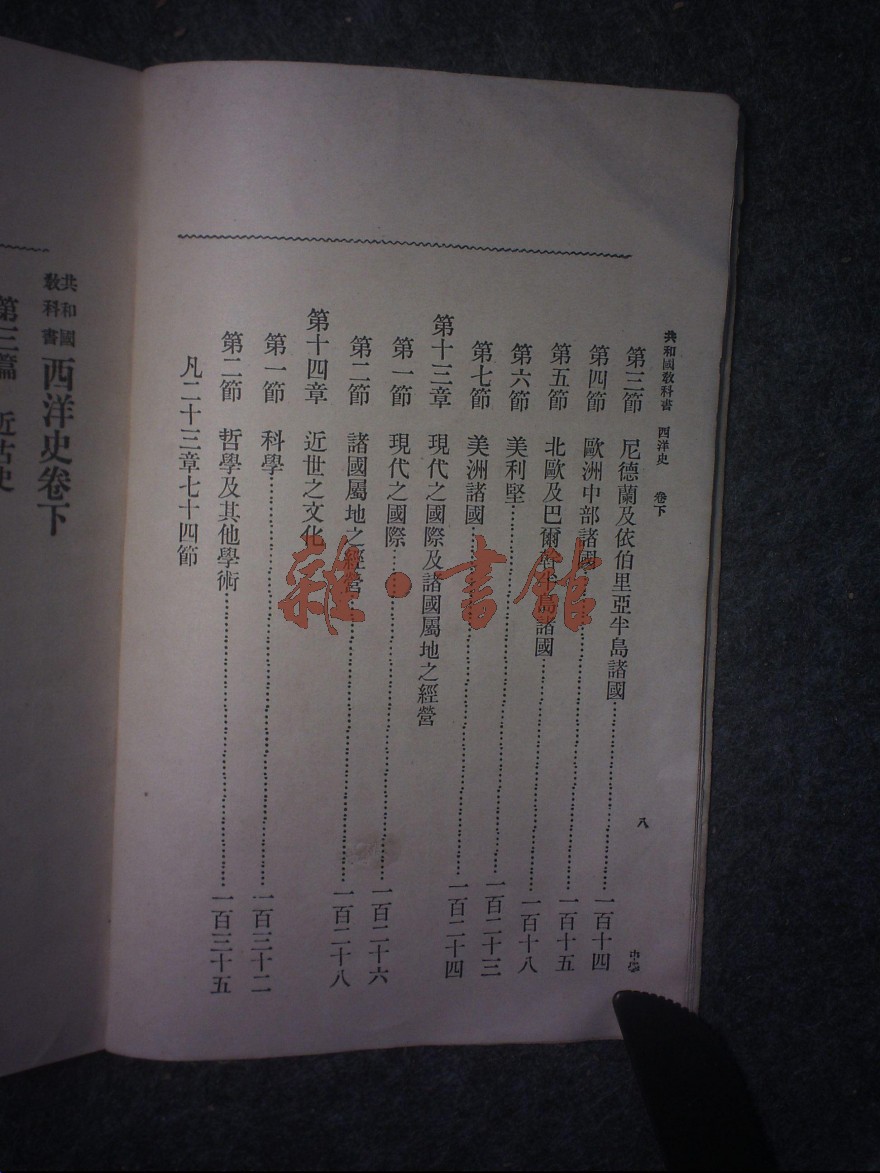 共和國教科書 西洋史 卷下 八 中學
第三節 尼德蘭及依伯里亞半島諸國……一百十四
第四節 歐洲中部諸國……一百十五
第五節 北歐及巴爾幹半島諸國……一百十八
第六節 美利堅……一百二十三
第七節 美洲諸國……一百二十四
第十三章 現代之國際及諸國屬地之經營
第一節 現代之國際……一百二十六
第二節 諸國屬地之經營……一百二十八
第十四章 近世之文化
第一節 科學……一百三十二
第二節 哲學及其他學術……一百三十五
凡二十三章七十四節
共和國教科書 西洋史卷下
第三篇 近古史
雜·書館